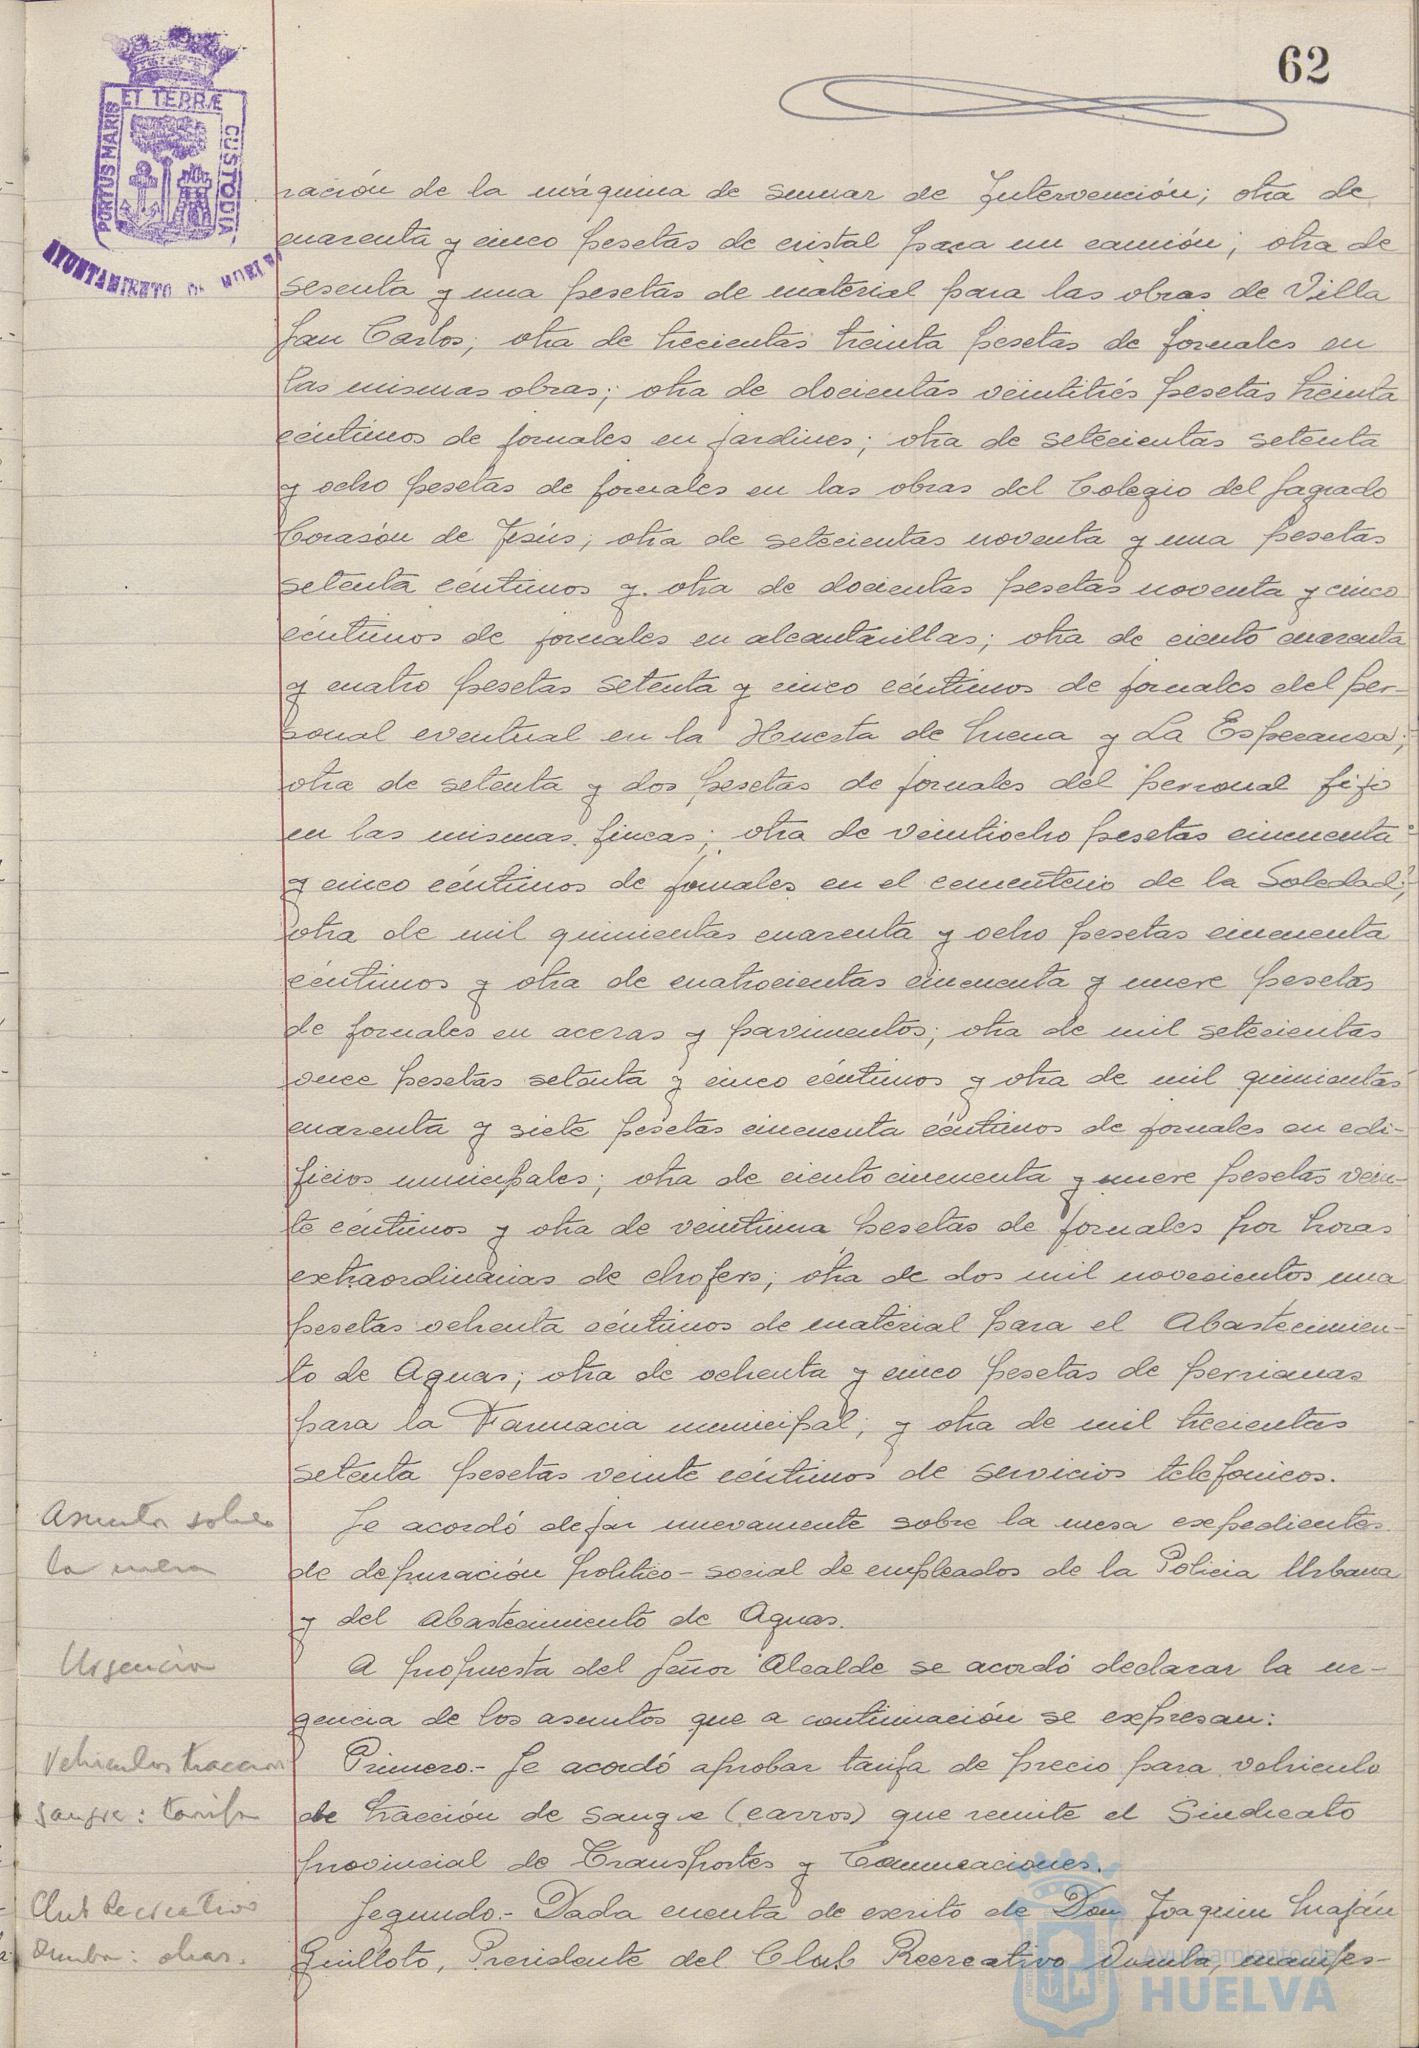 62
PORTUS MARIS
ET TERRÆ
CUSTODIA
AYUNTAMIENTO DE HUELVA
ración de la máquina de sumar de Intervención; otra de
cuarenta y cinco pesetas de cristal para un camión; otra de
sesenta y una pesetas de material para las obras de Villa
San Carlos; otra de trecientas treinta pesetas de jornales en
las mismas obras; otra de docientas veintitrés pesetas treinta
céntimos de jornales en jardines; otra de setecientas setenta
y ocho pesetas de jornales en las obras del Colegio del Sagrado
Corasón de Jesús; otra de setecientas noventa y una pesetas
setenta céntimos y otra de docientas pesetas noventa y cinco
céntimos de jornales en alcantarillas; otra de ciento cuarenta
y cuatro pesetas setenta y cinco céntimos de jornales del per-
sonal eventual en la Huerta de Mena y La Esperansa;
otra de setenta y dos pesetas de jornales del personal fijo
en las mismas fincas; otra de veintiocho pesetas cincuenta
y cinco céntimos de jornales en el cementerio de la Soledad;
otra de mil quinientas cuarenta y ocho pesetas cincuenta
céntimos y otra de cuatrocientas cincuenta y nueve pesetas
de jornales en aceras y pavimentos; otra de mil setecientas
once pesetas setenta y cinco céntimos y otra de mil quinientas
cuarenta y siete pesetas cincuenta céntimos de jornales en edi-
ficios municipales; otra de ciento cincuenta y nueve pesetas vein-
te céntimos y otra de veintiuna pesetas de jornales por horas
extraordinarias de chofers; otra de dos mil novecientos una
pesetas ochenta céntimos de material para el Abastecimien-
to de Aguas; otra de ochenta y cinco pesetas de persianas
para la Farmacia municipal; y otra de mil trecientas
setenta pesetas veinte céntimos de servicios telefonicos.
Asuntos sobre
la mesa
Se acordó dejar nuevamente sobre la mesa expedientes
de depuración politico-social de empleados de la Policia Urbana
y del Abastecimiento de Aguas.
Urgencia
A propuesta del Señor Alcalde se acordó declarar la ur-
gencia de los asuntos que a continuación se expresan:
Vehiculos tracción
sangre: tarifa
Primero.- Se acordó aprobar tarifa de precio para vehiculo
de tracción de sangre (carros) que remite el Sindicato
provincial de Transportes y Comunicaciones.
Club Recreativo
Onuba: obras.
Segundo.- Dada cuenta de escrito de Don Joaquin
Guilloto, Presidente del Club Recreativo Onuba, manifes-
Ayuntamiento de
HUELVA